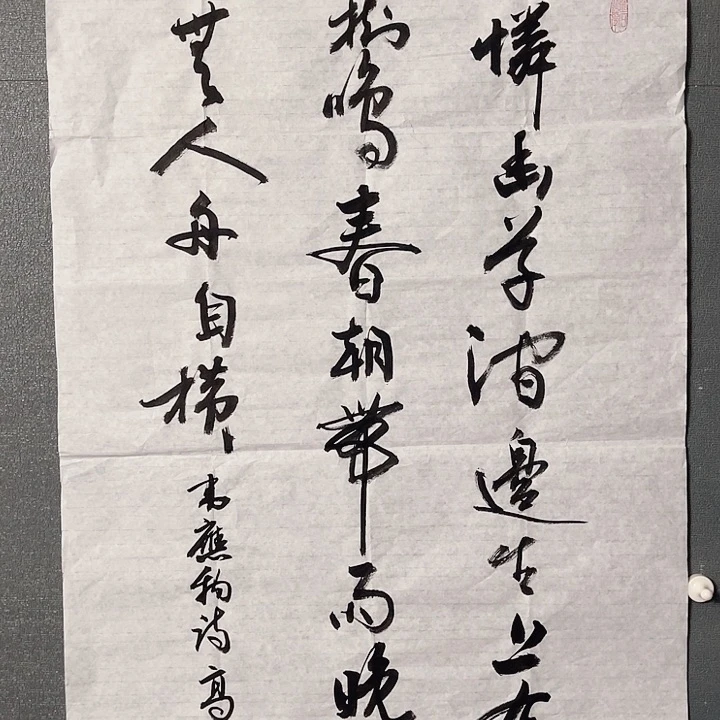 憐幽草澗邊生上有
樹鳴春朝帶雨晚
無人舟自橫
韋應物詩高